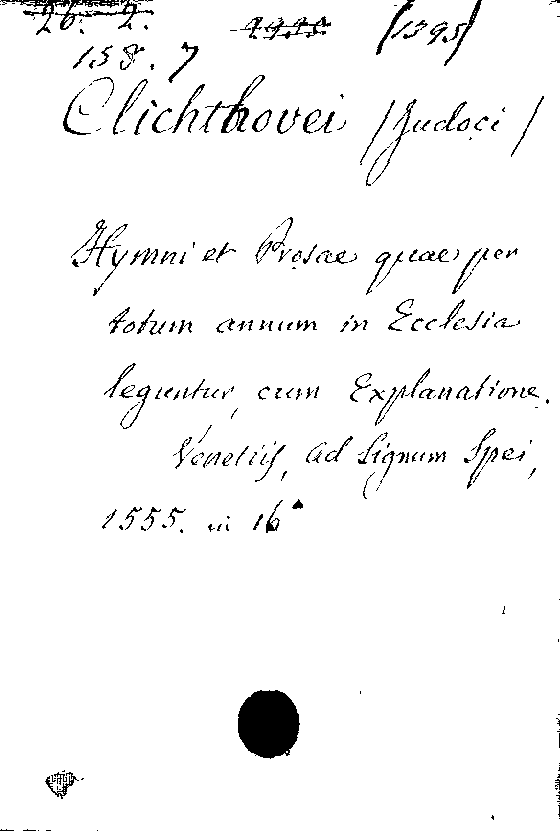 26. 2. (1395)
158. 7
Clichthovei /Judoci/
Hymni et Prosae quae per
totum annum in Ecclesia
leguntur, cum Explanatione.
Venetiis, ad Signum Spei,
1555. in 16°